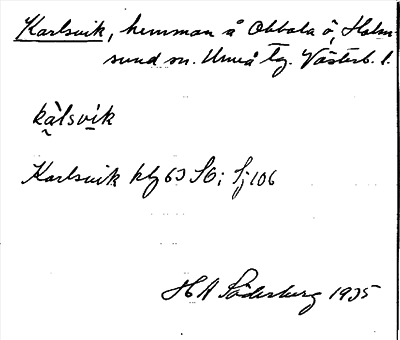 Karlsvik, hemman å Obbola ö, Holm-
sund sn. Umeå tg. Västerb. l.
kàlsvik
Karlsvik kbg 63 SO; Sj 106
H A Söderberg 1935